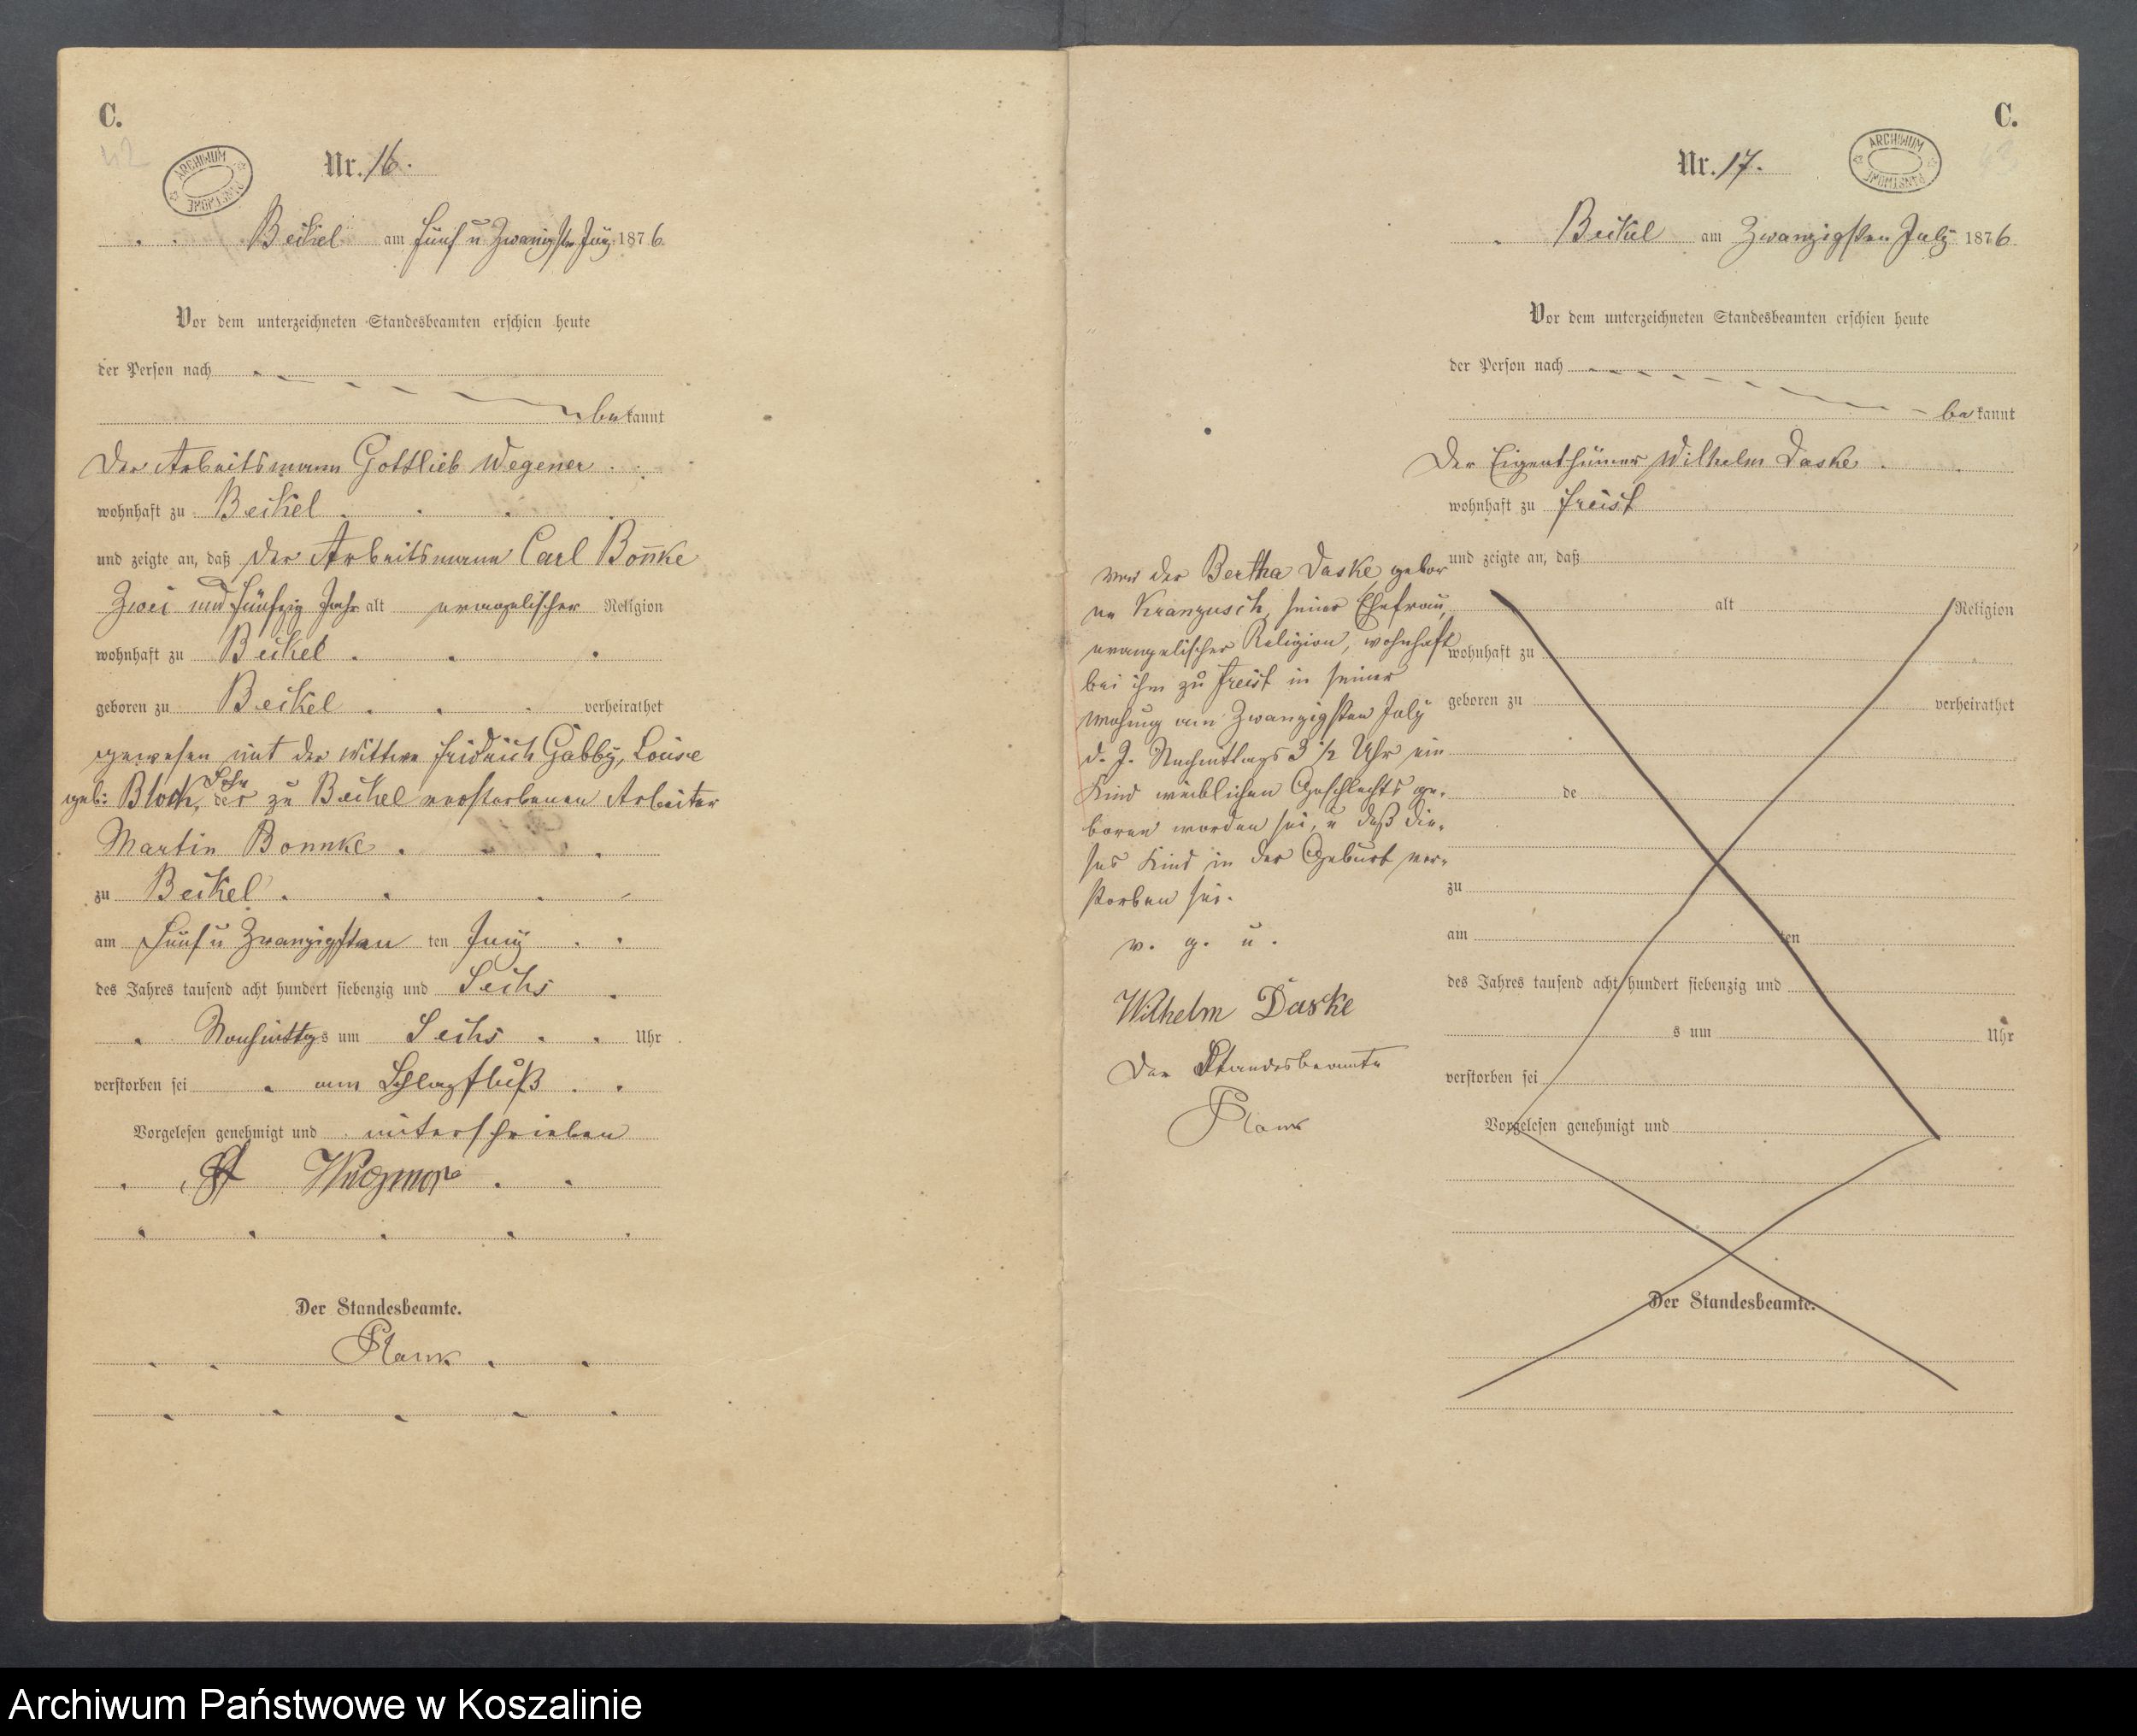 C.
42
ARCHIWUM PAŃSTWOWE
Nr. 16.
Beckel am fünf u Zwanzigsten Juny 1876.
Vor dem unterzeichneten Standesbeamten erschien heute
der Person nach
bekannt
Der Arbeitsmann Gottlieb Wegener.
wohnhaft zu Beckel
und zeigte an, daß der Arbeitsmann Carl Bon̄ke
Zwei und fünfzig Jahr alt evangelischer Religion
wohnhaft zu Beckel
geboren zu Beckel verheirathet
gewesen mit der Wittwe Fridrich Gabby, Louise
geb: Block, Sohn des zu Beckel verstorbenen Arbeiter
Martin Bonnke
zu Beckel
am Fünf u Zwanzigsten ten Juny
des Jahres tausend acht hundert siebenzig und Sechs
Nachmittags um Sechs Uhr
verstorben sei am Schlagfluß
Vorgelesen genehmigt und unterschrieben
Der Standesbeamte.
C.
ARCHIWUM PAŃSTWOWE
Nr. 17.
Beckel am Zwanzigsten July 1876.
Vor dem unterzeichneten Standesbeamten erschien heute
der Person nach
bekannt
Der Eigenthümer Wilhelm Daske
wohnhaft zu Freist
und zeigte an, daß
von der Bertha Daske gebor
ne Kranzusch, seiner Ehefrau,
evangelischer Religion, wohnhaft
bei ihm zu Freist in seiner
Wohnung am Zwanzigsten July
d. J. Nachmittags 3 1/2 Uhr ein
Kind weiblichen Geschlechts ge-
boren worden sei, u daß die-
ses Kind in der Geburt ver-
storben sei.
v. g. u.
Wilhelm Daske
Der Standesbeamte
alt Religion
wohnhaft zu
geboren zu verheirathet
de
zu
am ten
des Jahres tausend acht hundert siebenzig und
s um Uhr
verstorben sei
Vorgelesen genehmigt und
Der Standesbeamte.
Archiwum Państwowe w Koszalinie